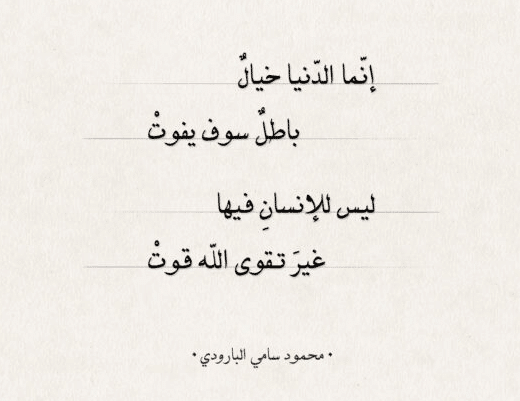 إنّما الدّنيا خيالٌ
باطلٌ سوف يفوتْ
ليس للإنسانِ فيها
غيرَ تقوى اللّه قوتْ
• محمود سامي البارودي •